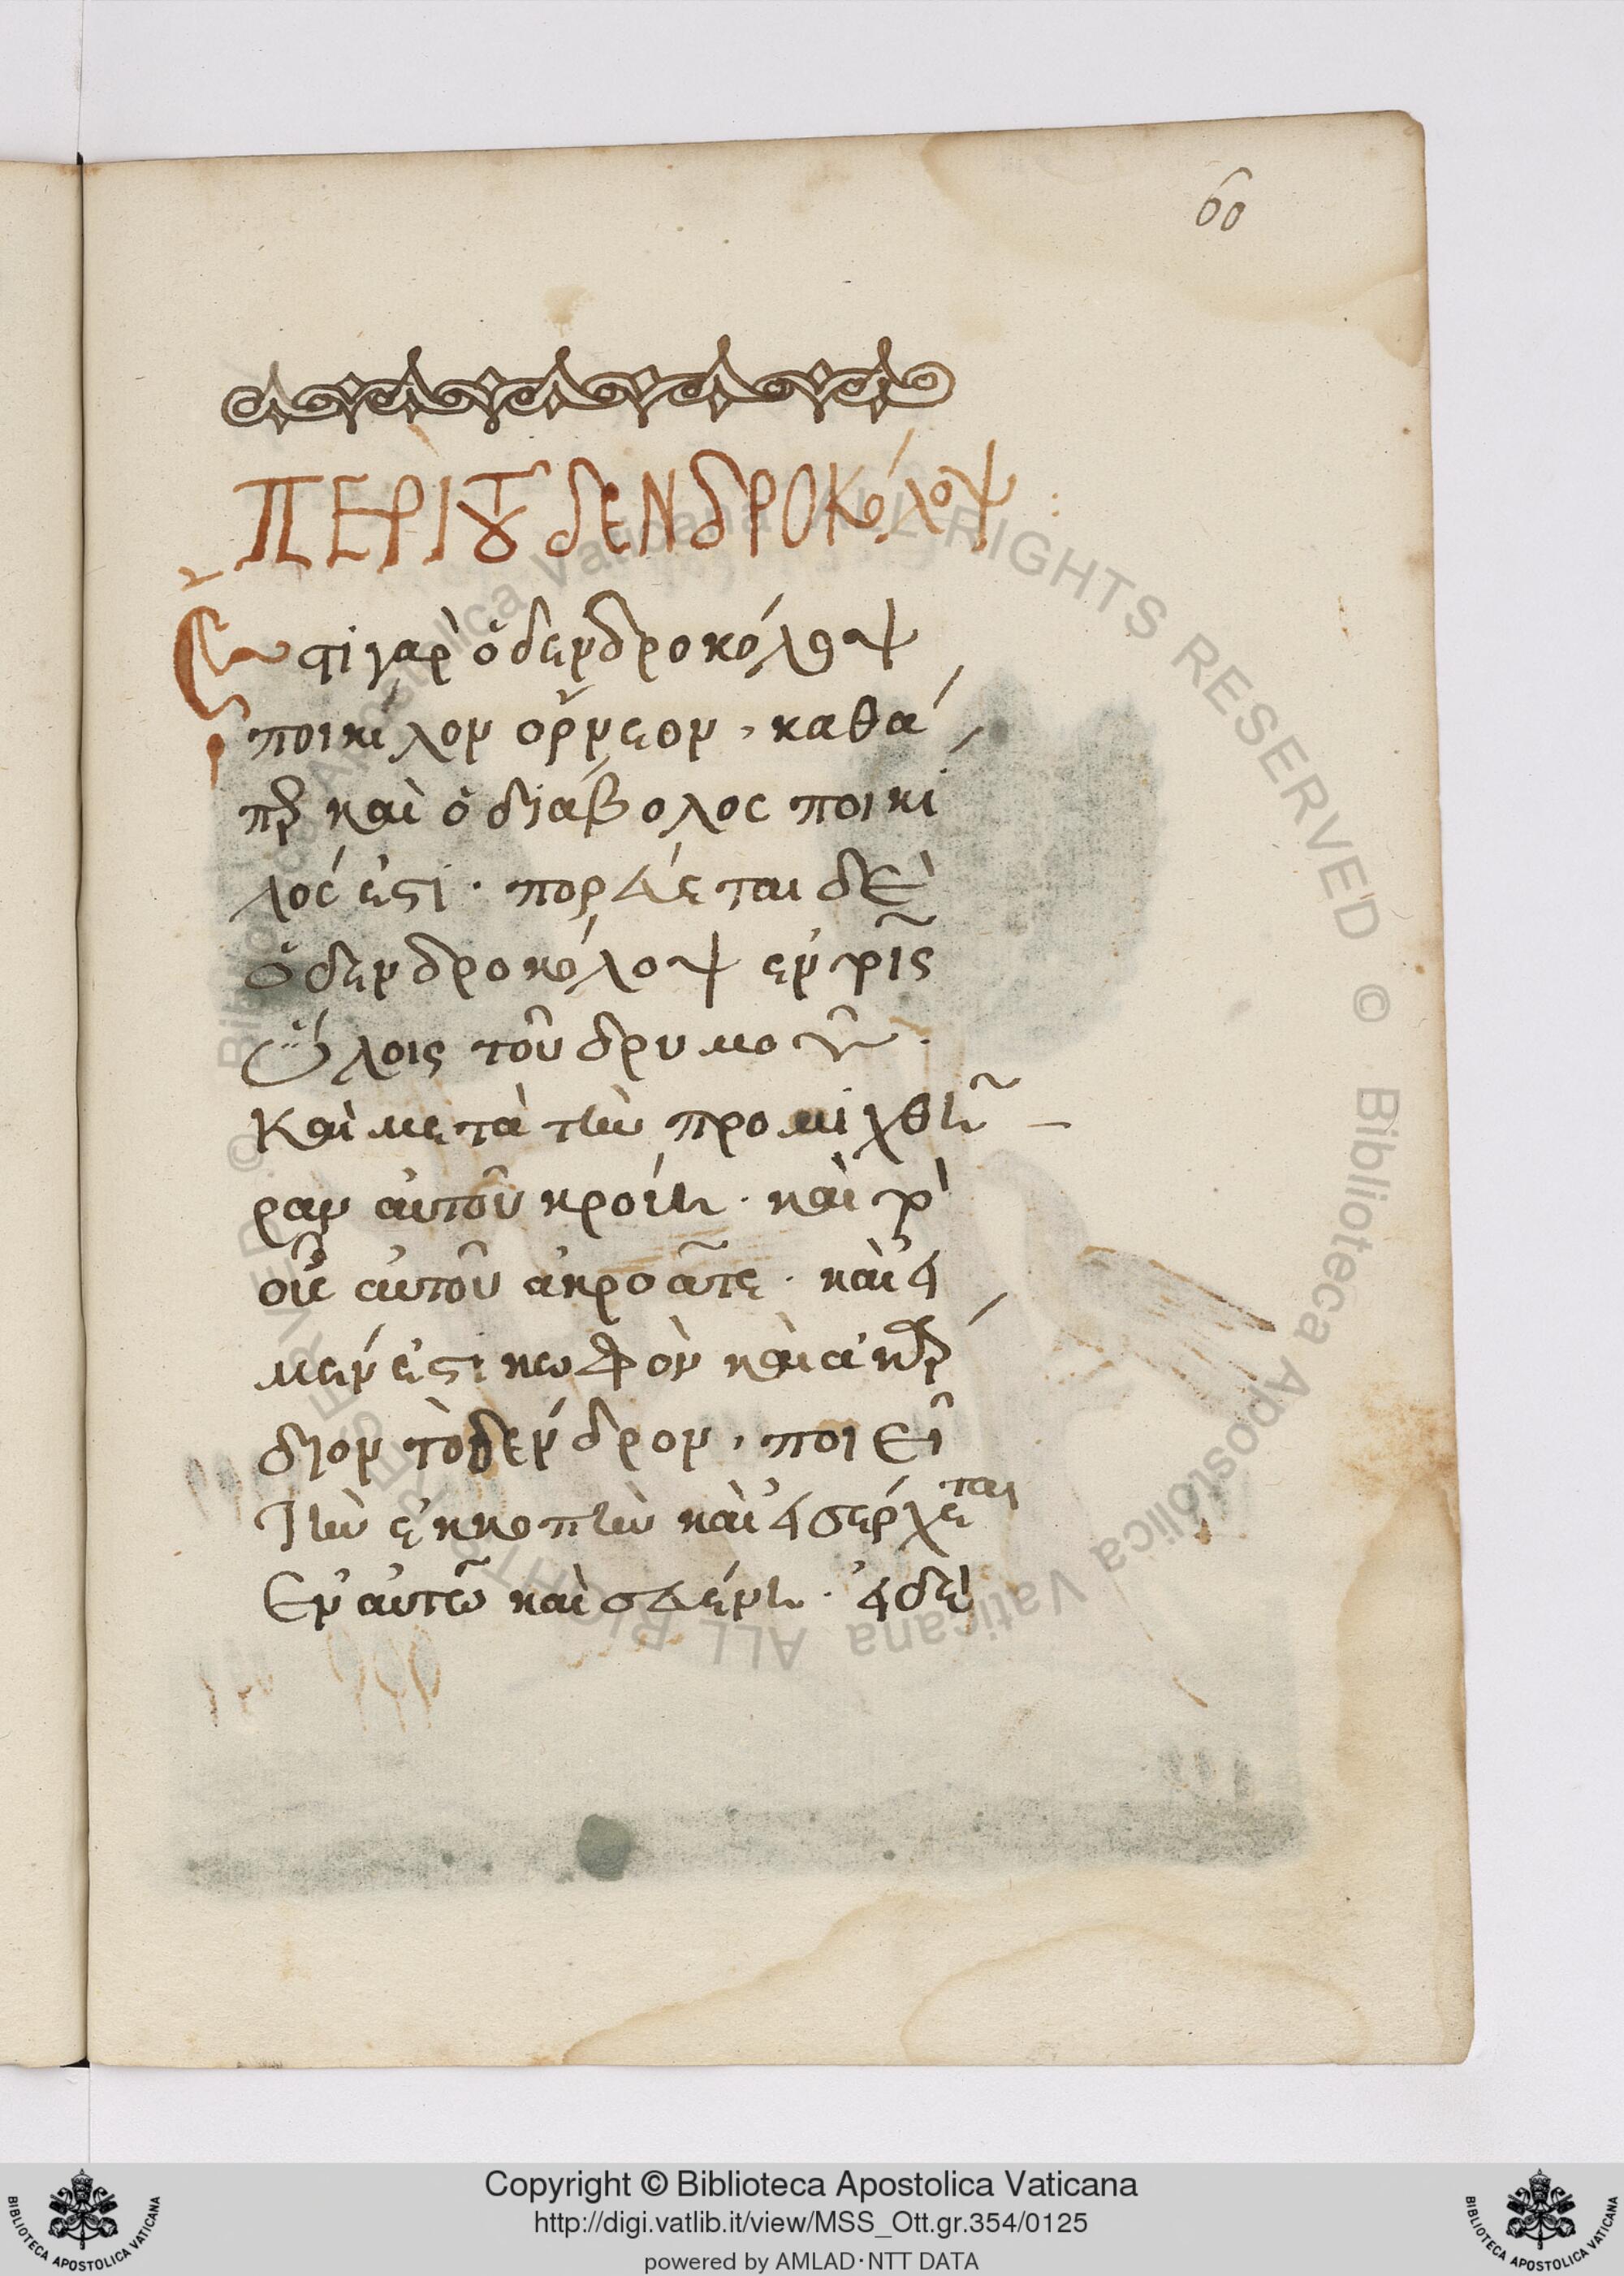 60
ΠΕΡΙ ΤΟΥ ΔΕΝΔΡΟΚόλοψ :
Ἔστι γὰρ ὁ δενδροκόλοψ
ποικίλον ὄρνεον, καθά
περ καὶ ὁ διάβολος ποικί
λός ἐστι · πορεύεται δὲ
ὁ δενδροκόλοψ ἐν τοῖς
ὕλοις τοῦ δρυμοῦ.
Καὶ μετὰ τὴν προμύχθη
ραν αὐτοῦ κρούει · καὶ τὸ
οὖς αὐτοῦ ἀκροᾶτε · καὶ εἰ
μέν ἐστι κωφὸν καὶ ἀκάρ
διον τὸ δένδρον, ποιεῖ
τὴν ἐκκοπὴν καὶ εἰσέρχεται
Ἐν αὐτῷ καὶ εὑ · εἰ δὲ
Copyright © Biblioteca Apostolica Vaticana
http://digi.vatlib.it/view/MSS_Ott.gr.354/0125
powered by AMLAD·NTT DATA
BIBLIOTECA APOSTOLICA VATICANA
BIBLIOTECA APOSTOLICA VATICANA
© Biblioteca Apostolica Vaticana ALL RIGHTS RESERVED © Biblioteca Apostolica Vaticana ALL RIGHTS RESERVED